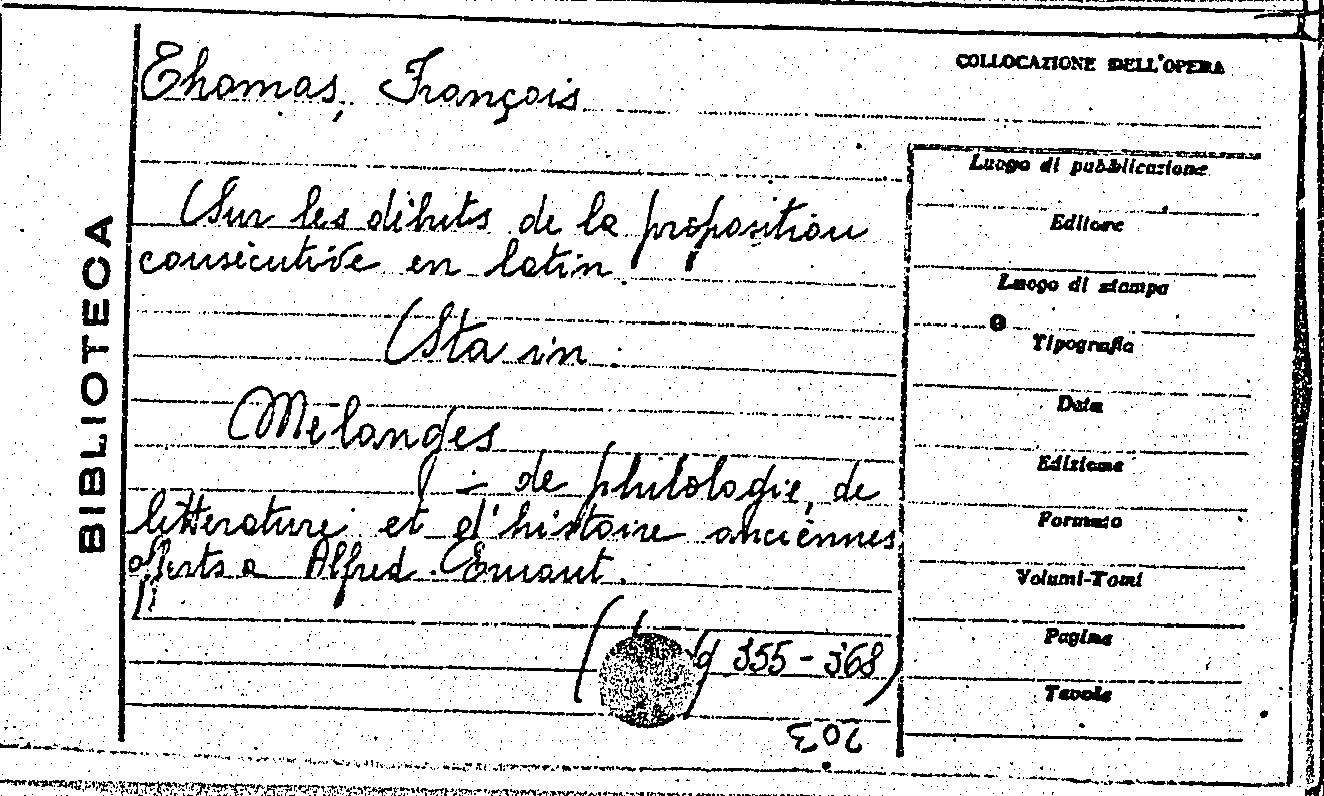 COLLOCAZIONE DELL'OPERA
Thomas, François
Sur les débuts de la proposition
consécutive en latin
Sta in
Mélanges
- de philologie, de
littérature et d'histoire anciennes
offerts a Alfred Ernout.
355 - 368)
203
BIBLIOTECA
Luogo di pubblicazione
Editore
Luogo di stampa
Tipografia
Data
Edizione
Formato
Volumi-Tomi
Pagine
Tavole